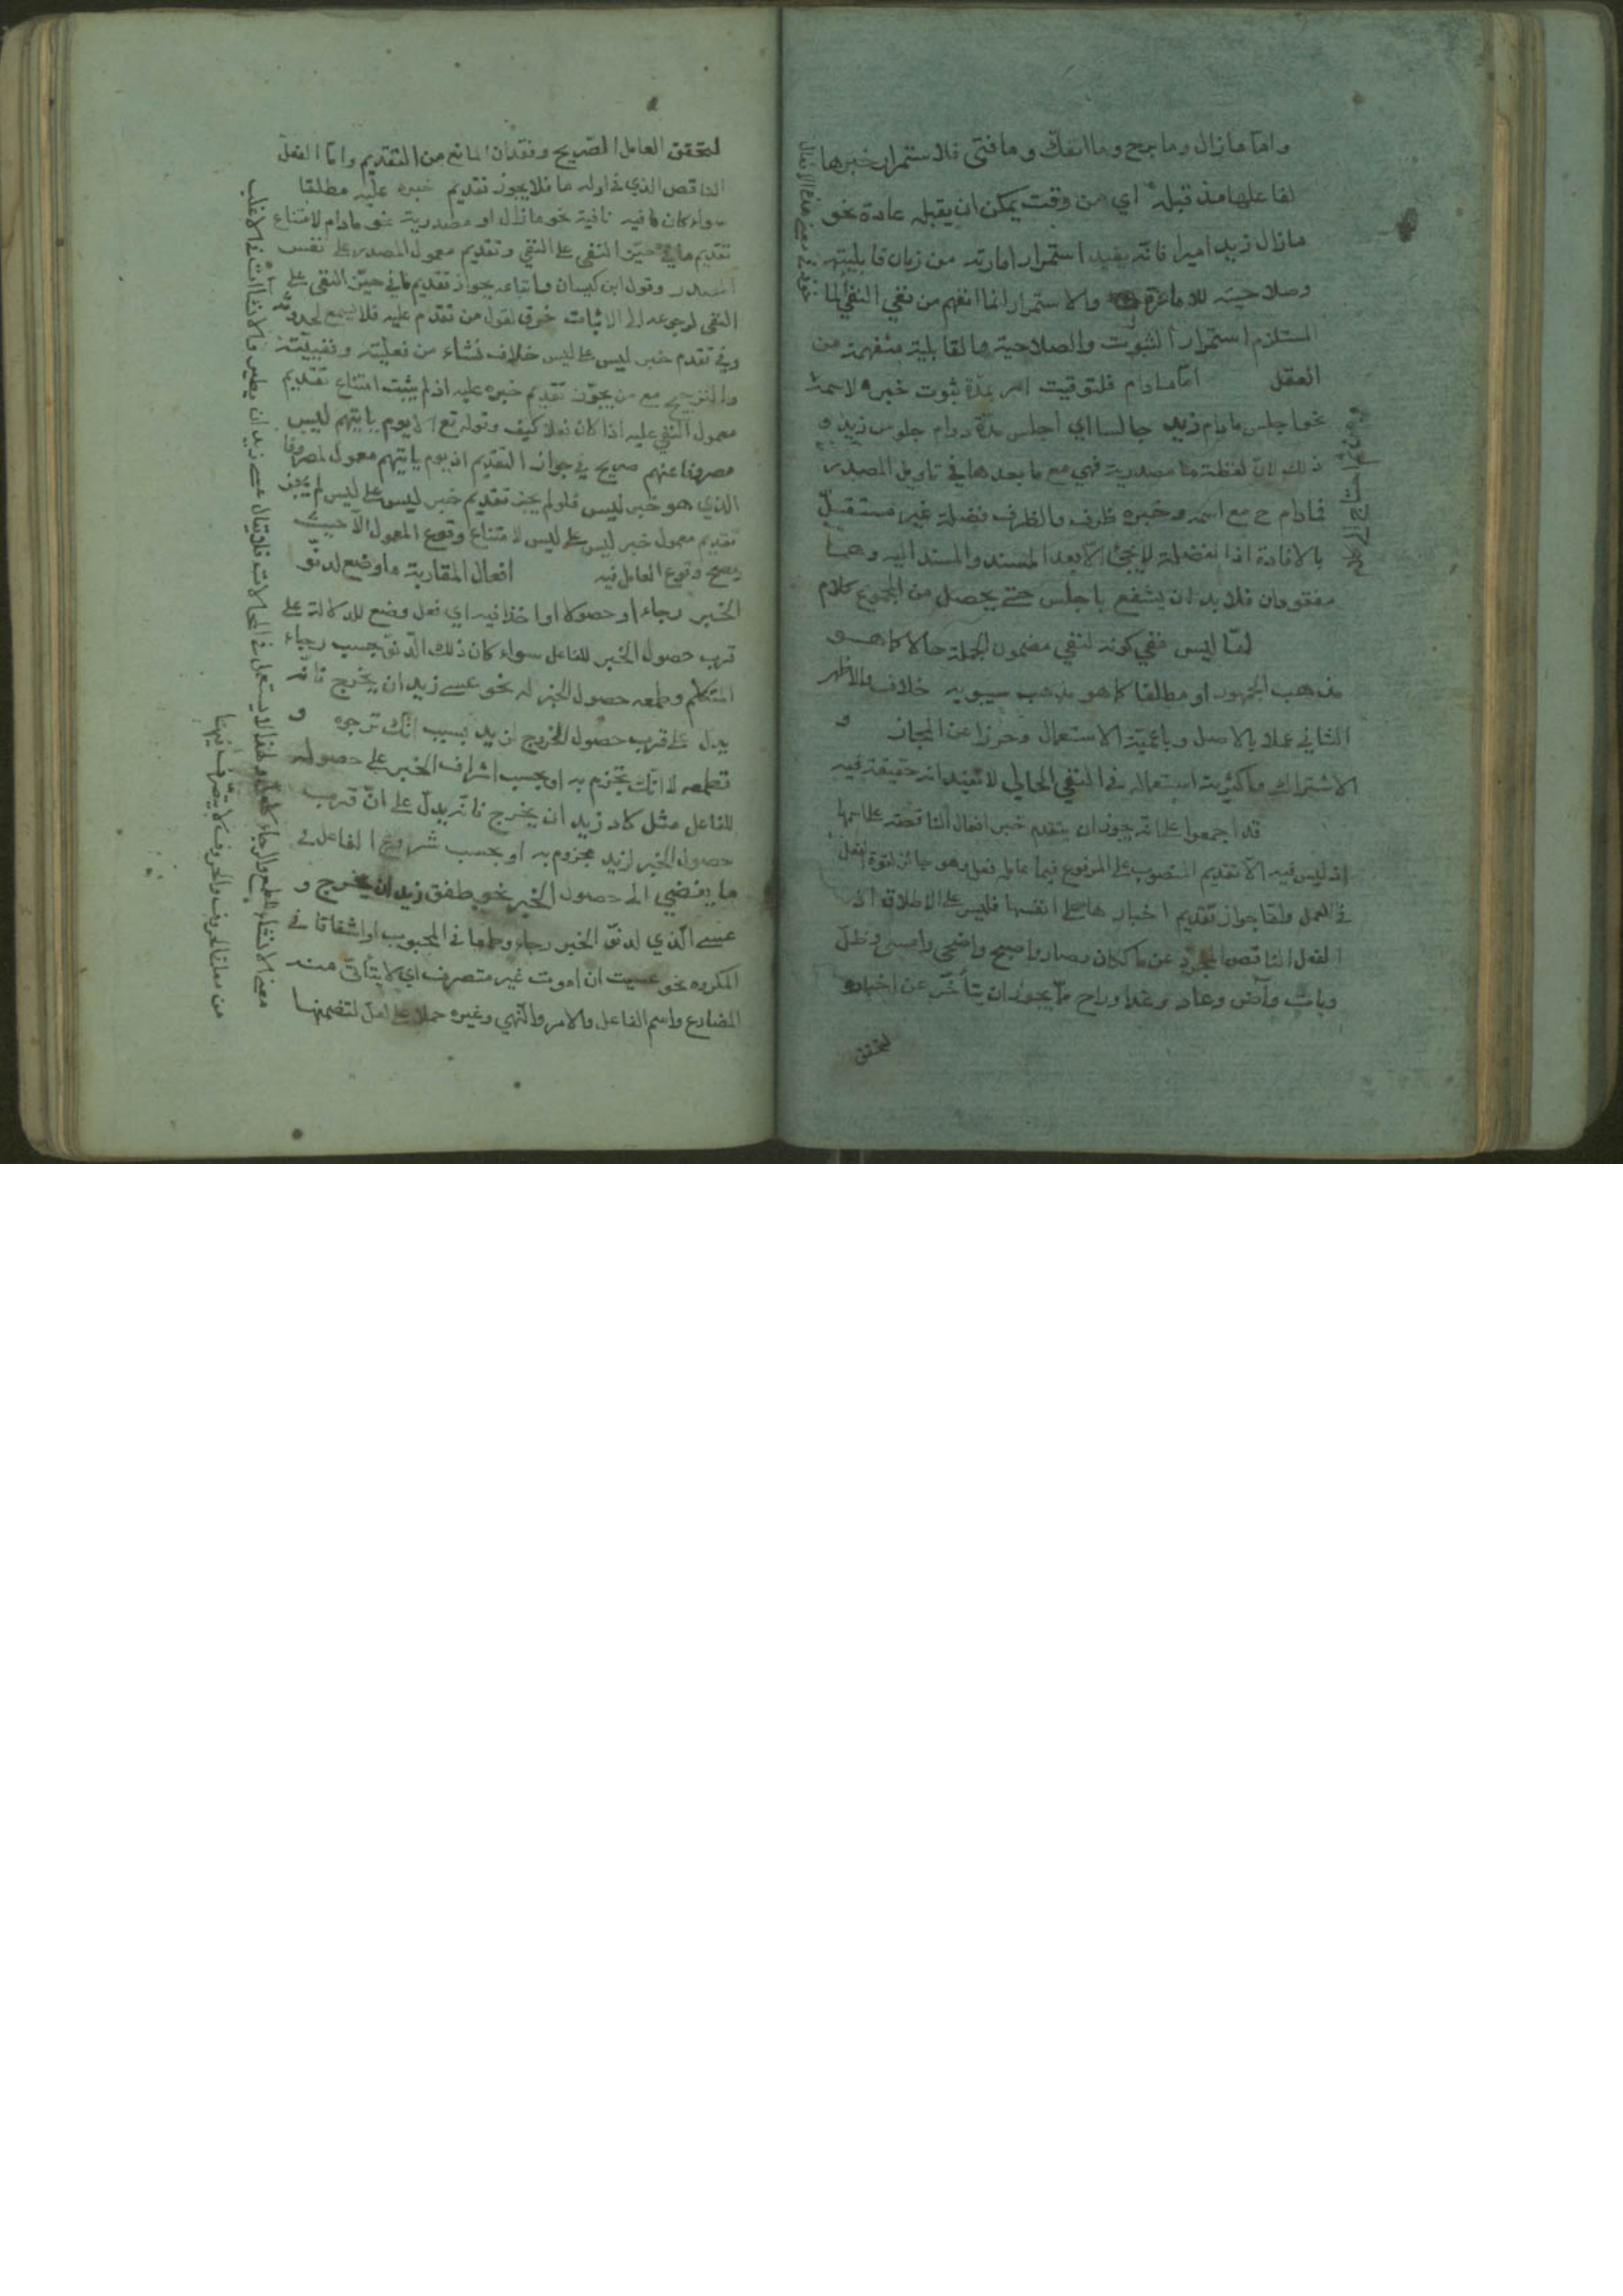 واما مازال وما برح وما انفك وما فتى فلاستمرار خبرها
لفاعلها مذ قبله اي من وقت يمكن ان يقبله عادة نحو
مازال زيد اميرا فانه يفيد استمرار امارته من زمان قابليته
وصلاحيته للامارة والاستمرار انما انفهم من نفي النفي
المستلزم استمرار الثبوت والصلاحية والقابلية منفهمة من
العقل اما مادام فلتوقيت امر بمدة ثبوت خبره لاسمه
نحو اجلس مادام زيد جالسا اي اجلس مدة دوام جلوس زيد و
ذلك لان لفظة ما مصدرية فهي مع ما بعدها في تاويل المصدر
فمادام ح مع اسمه وخبره ظرف والظرف فضلة غير مستقل
بالافادة اذ الفضلة لا يجئ الا بعد المسند والمسند اليه وهما
مفقودان فلا بد ان يشفع باجلس حتى يحصل من المجموع كلام
اما ليس ففي كونه لنفي مضمون الجملة حالا كما هو
مذهب الجمهور او مطلقا كما هو مذهب سيبويه خلاف والاظهر
الثاني عملا بالاصل وباعمية الاستعمال وحرزا عن المجاز و
الاشتراك واكثرية استعماله في النفي الحالي لا تفيد انه حقيقة فيه
قد اجمعوا على انه يجوز ان يتقدم خبر افعال الناقصة على اسمها
اذ ليس فيه الا تقديم المنصوب على المرفوع فيما عامله فعل وهو جائز لقوة الفعل
في العمل واما جواز تقديم اخبارها على انفسها فليس على الاطلاق اذ
الفعل الناقص المجرد عن ما ككان وصار واصبح واضحى وامسى وظل
وبات وآض وعاد وغدا وراح مما يجوز ان يتأخر عن اخباره
لتحقق
لتحقق العامل الصريح وفقدان المانع من التقديم واما الفعل
الناقص الذي في اوله ما فلا يجوز تقديم خبره عليه مطلقا
سواء كان ما فيه نافية نحو مازال او مصدرية نحو مادام لامتناع
تقديم ما في حيز النفي على النفي وتقديم معمول المصدر على نفس
المصدر وقول ابن كيسان واتباعه بجواز تقديم ما في حيز النفي على
النفي لرجوعه الى الاثبات خرق لقول من تقدم عليه فلا يسمع
وفي تقدم خبر ليس على ليس خلاف نشاء من فعليته ونفييته
والترجيح مع من يجوز تقديم خبره عليه اذ لم يثبت امتناع تقديم
معمول النفي عليه اذا كان فعلا كيف وقوله تع الا يوم يأتيهم ليس
مصروفا عنهم صريح في جواز التقديم اذ يوم يأتيهم معول لمصروفا
الذي هو خبر ليس فلو لم يجز تقديم خبر ليس على ليس لم يجز
تقديم معمول خبر ليس على ليس لامتناع وقوع المعمول الا حيث
يصح وقوع العامل فيه افعال المقاربة ما وضع لدنو
الخبر رجاء او حصولا او اخذا فيه اي فعل وضع للدلالة على
قرب حصول الخبر للفاعل سواء كان ذلك الدنو بحسب رجاء
المتكلم وطمعه حصول الخبر له نحو عسى زيد ان يخرج فانه
يدل على قرب حصول الخروج لزيد بسبب انك ترجوه و
تطمعه لا انك تجزم به او بحسب اشراف الخبر على حصوله
للفاعل مثل كاد زيد ان يخرج فانه يدل على ان قرب
حصول الخبر لزيد مجزوم به او بحسب شروع الفاعل في
ما يفضي الى حصول الخبر نحو طفق زيد ان يخرج و
عسى الذي لدنو الخبر رجاء وطمعا في المحبوب او اشفاقا في
المكروه نحو عسيت ان اموت غير متصرف اي لا يتأتى منه
المضارع واسم الفاعل والامر والنهي وغيره حملا على لعل لتضمنها
معنى الانشاء الطمع والرجاء كلعل
من معاني الحروف والحروف لا يتصرف فيها